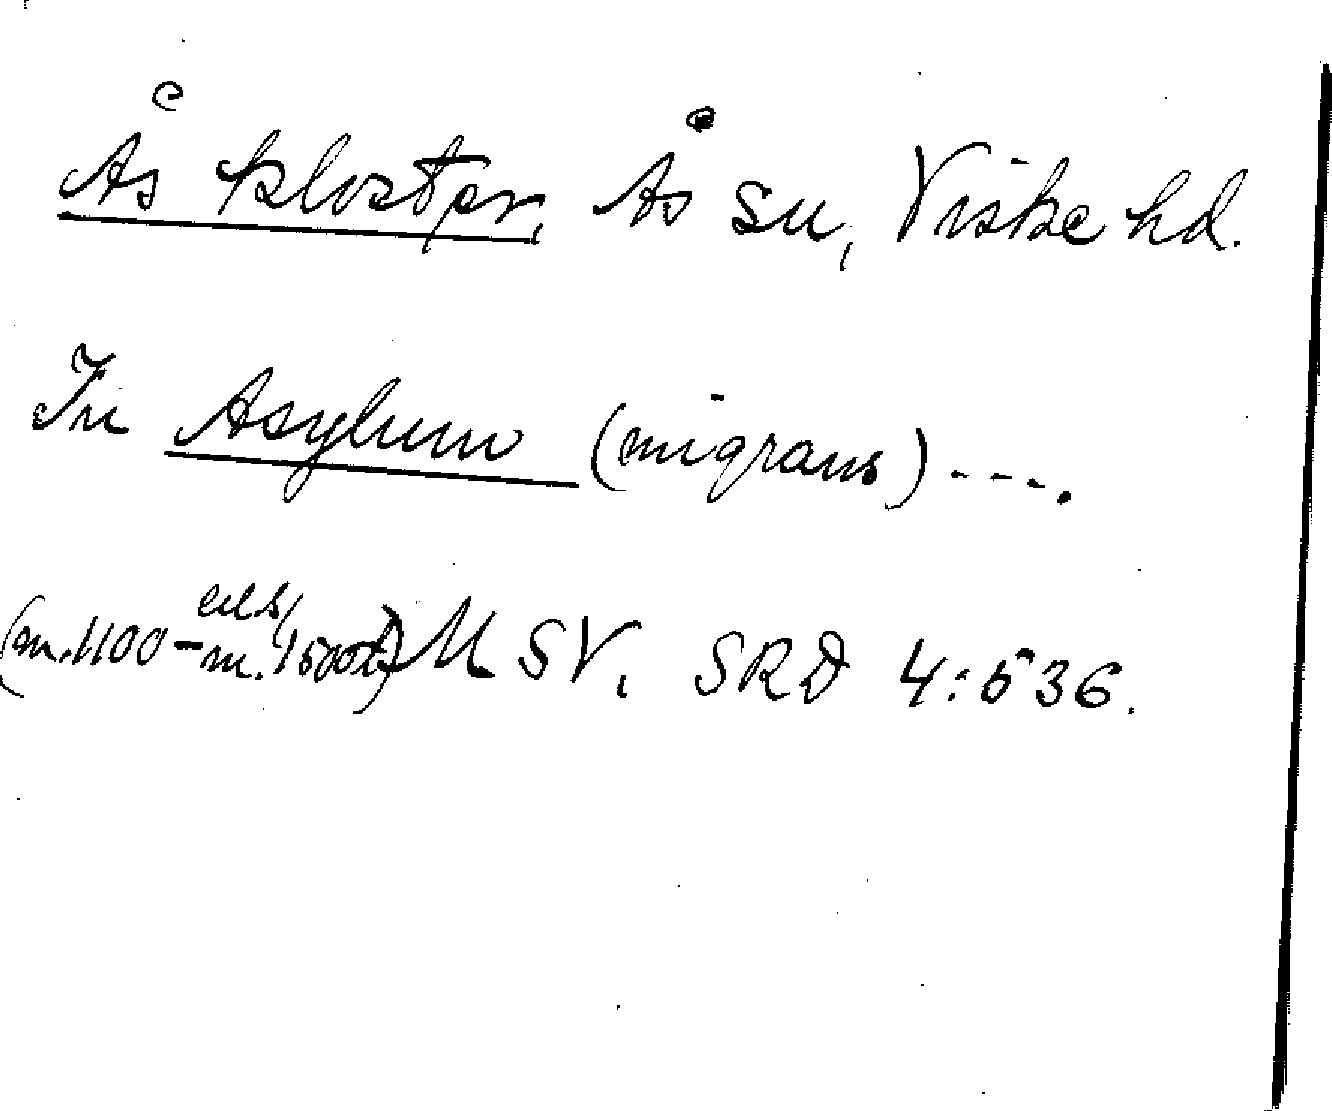 Ås kloster, Ås su, Viske hd.
In Asylum (migrans) ---.
(m. 1100 - m. 1500t) SV. SRD 4:536.